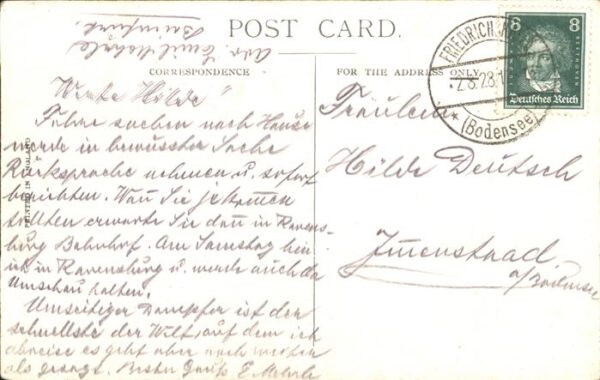 Adr. Emil Mehrle
POST CARD.
CORRESPONDENCE
FOR THE ADDRESS ONLY
8 8
Deutsches Reich
FRIEDRICH
2.8.28.1
* (Bodensee)
PRINTED IN ENGLAND
Werte Hilde"
Fahre soeben nach Hause
werde in bewusster Sache
Rücksprache nehmen u. sofort
berichten. Wan Sie je kommen
sollten erwarte Sie dan in Ravens-
burg Bahnhof. Am Samstag bin
ich in Ravensburg u. werde auch da
Umschau halten.
Umseitiger Dampfer ist der
schnellste der Welt, auf dem ich
abreise es geht aber noch weiter
als gesagt. Besten Gruß E. Mehrle
Fräulein
Hilde Deutsch
Immenstaad
a/Bodensee